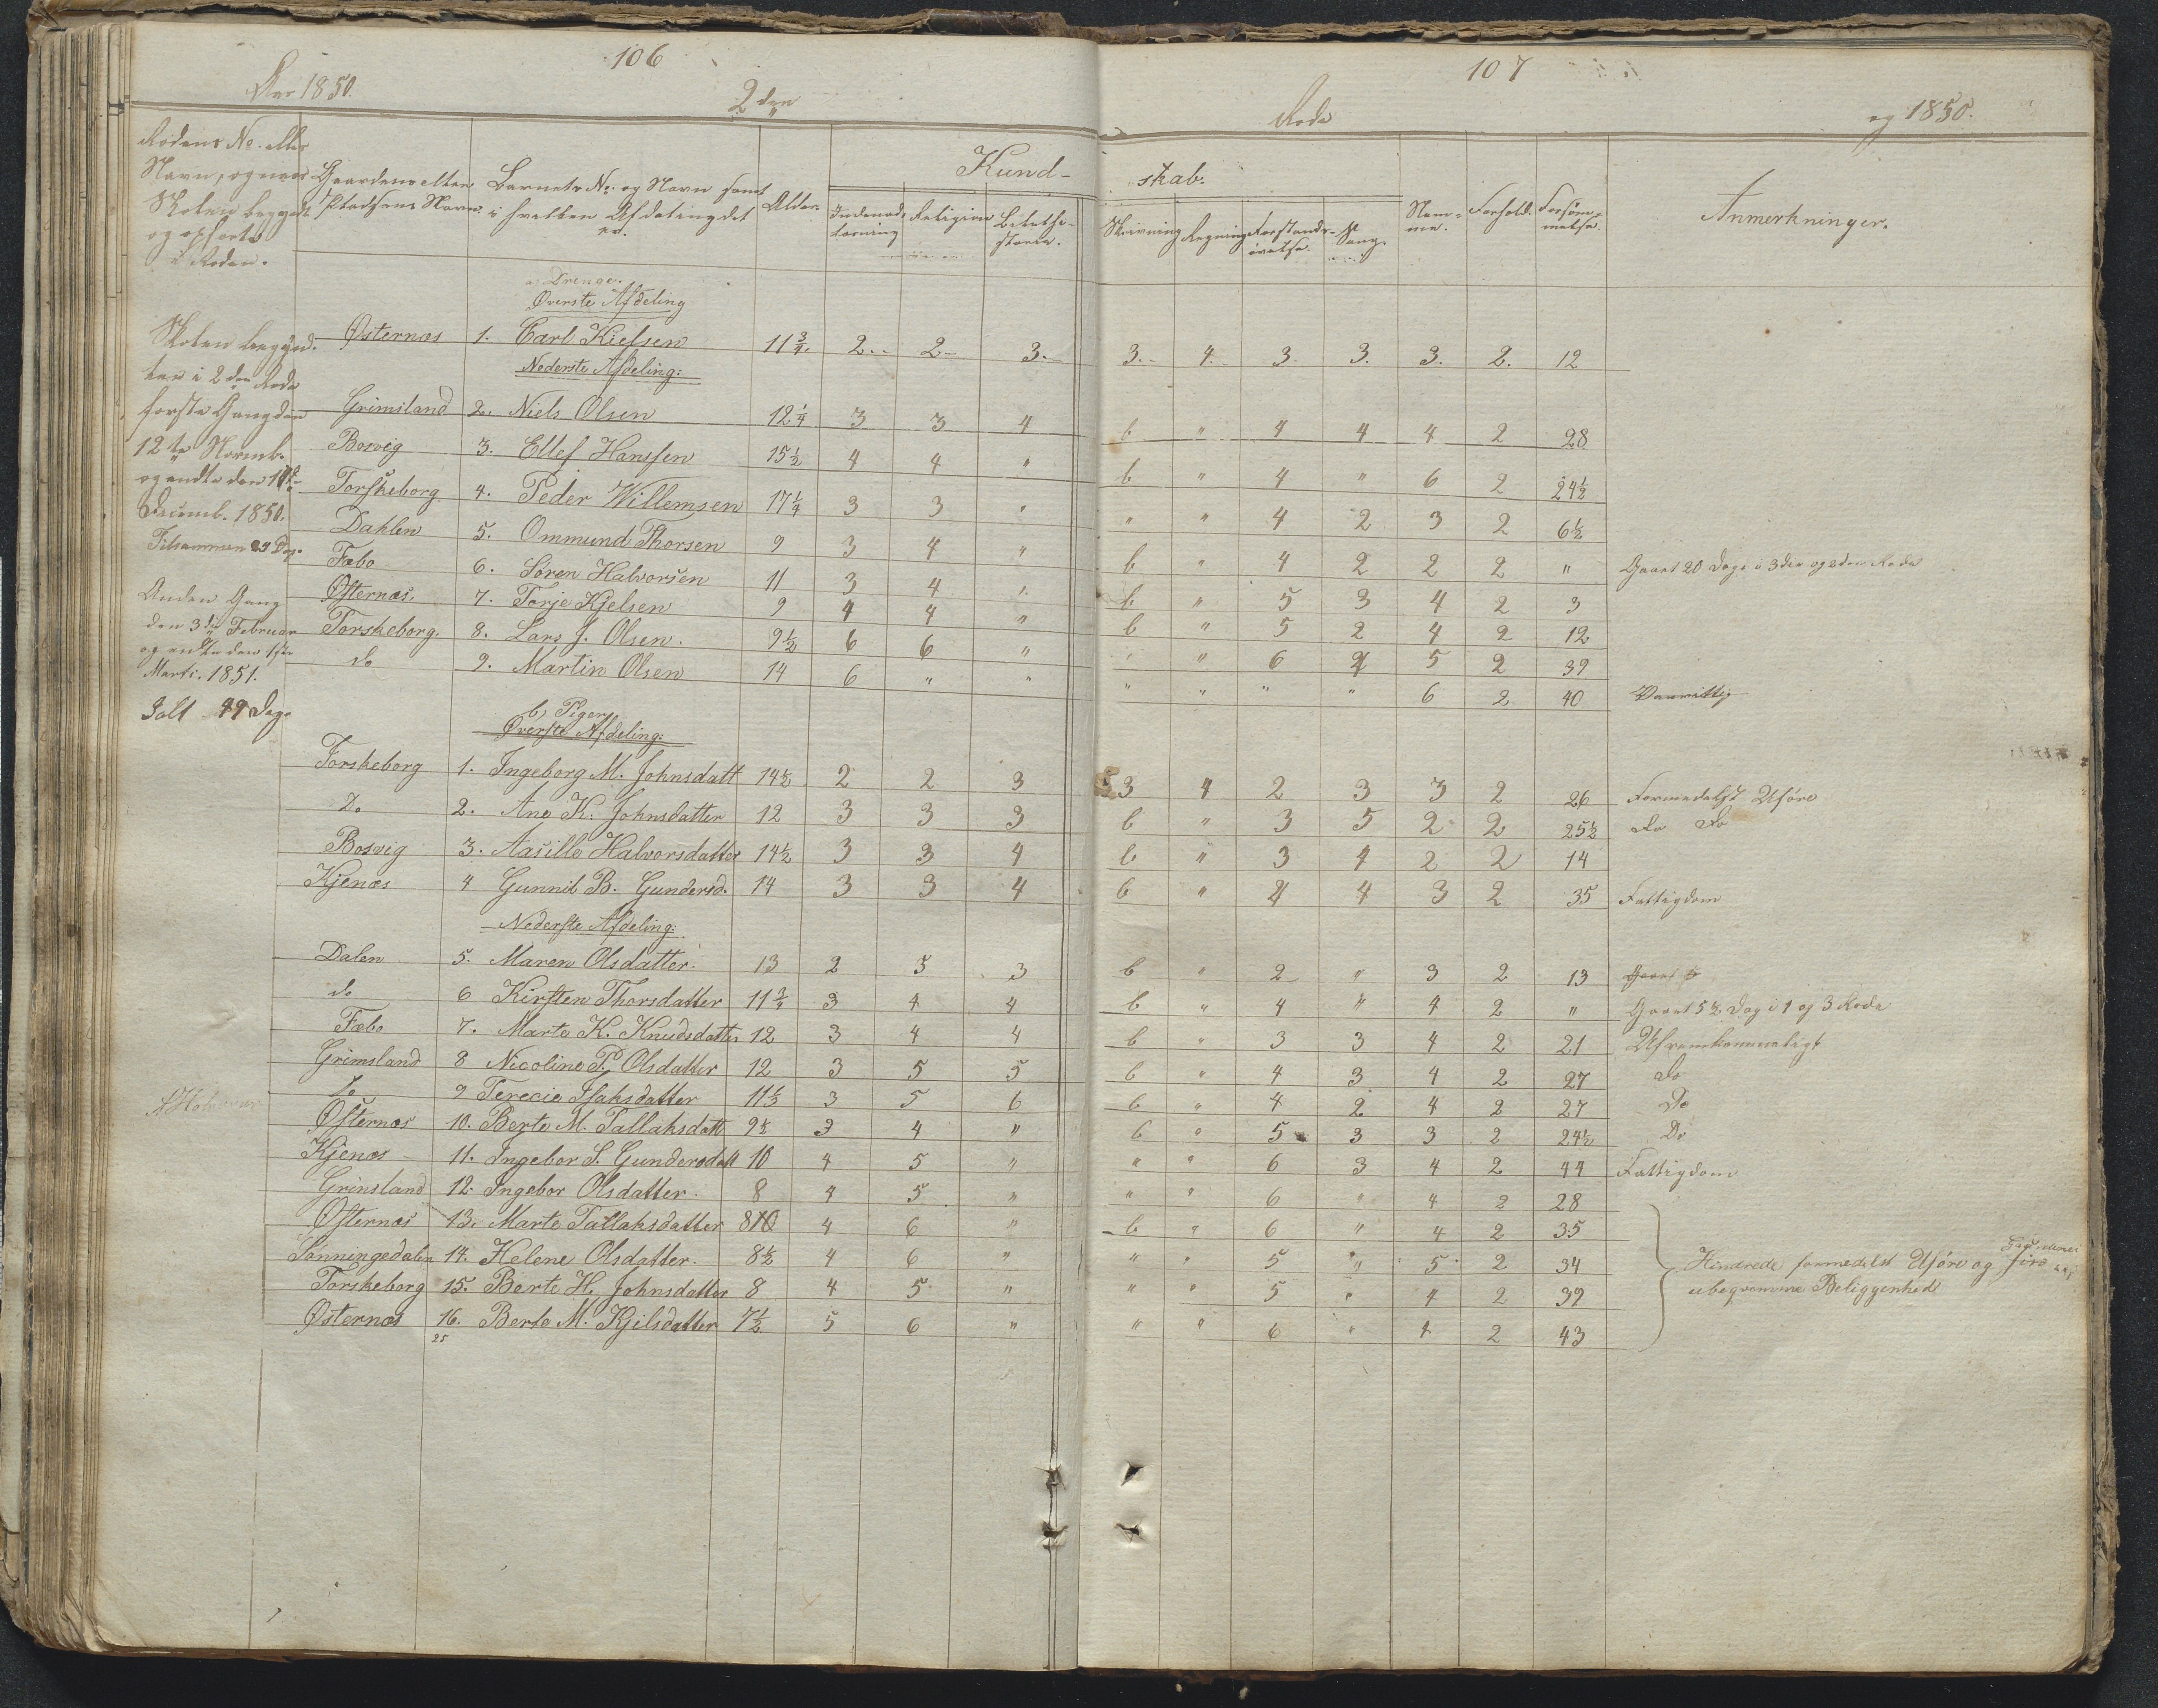 106
107
Aar 1850.
2den
Rode
og 1850.
Rodens No. eller
Navn, og naar
Skolen begyndt
og ophørte
i Roden.
Gaardens eller
Pladsens Navn.
Barnets No. og Navn samt
i hvilken Afdeling det
er.
Alder.
Kund-
skab.
Indenads
læsning
Religion
Bibelhi-
storie.
Skrivning
Regning
Forstands-
øvelse.
Sang.
Nem-
me.
Forhold.
Forsøm-
melse.
Anmerkninger.
a) Drenge.
Øverste Afdeling
Østernæs 1. Carl Kielsen 11 3/4. 2. 2 3. 3. 4. 3. 3. 3. 2. 12
Nederste Afdeling:
Grimsland 2. Niels Olsen 12 1/4 3 3 4 6 " 4 4 4 2 28
Bosvig 3. Ellef Hanssen 15 1/2 4 4 " 6 " 4 " 6 2 24 1/2
Torskeborg 4. Peder Willemsen 17 1/4 3 3 " " " 4 2 3 2 6 1/2
Dahlen 5. Ommund Thorsen 9 3 4 " 6 " 4 2 2 2 " Gaaet 20 Dage i 3die og 2den Rode
Fæbo 6. Søren Halvorsen 11 3 4 " 6 " 5 3 4 2 3
Østernæs. 7. Torje Kjelsen 9 4 4 " 6 " 5 2 4 2 12
Torskeborg. 8. Lars J. Olsen. 9 1/2 6 6 " " " 6 4 5 2 39
do 9. Martin Olsen 14 6 " " " " " " 6 2 40 Vanvittig
Skolen begynd-
tes i 2den Rode
første Gang den
12te Novemb.
og endte den
Decemb. 1850.
Tilsammen 29 Dag.
Anden Gang
den 3die Februar
og endte den 1ste
Marts. 1851.
Ialt 49 Dage
b) Piger
Øverste Afdeling:
Torskeborg 1. Ingeborg M. Johnsdatt 14 1/2 2 2 3 3 4 2 3 3 2 26 Formedelst Uføre
Do 2. Ane K. Johnsdatter 12 3 3 3 6 " 3 5 2 2 25 1/2 do do
Bosvig 3. Aasille Halvorsdatter 14 1/2 3 3 4 6 " 3 4 2 2 14
Kjenæs 4 Gunnil B. Gundersd. 14 3 3 4 6 " 4 4 3 2 35 Fattigdom
Nederste Afdeling:
Dalen 5. Maren Olsdatter. 13 2 3 3 6 " 2 " 3 2 13 Gaaet 5
do 6 Kirsten Thorsdatter 11 3/4 3 4 4 6 " 4 " 4 2 " Gaaet 5 1/2 Dag i 1 og 3 Rode
Fæbo 7. Marte K. Knudsdatter 12 3 4 4 6 " 3 3 4 2 21 Ufremkommeligt
Grimsland 8 Nicoline P. Olsdatter 12 3 5 5 6 " 4 3 4 2 27 do
do 9 Terecie Isaksdatter 11 1/2 3 5 6 6 " 4 2 4 2 27 Do
Østernæs 10. Berte M. Tallaksdatt 9 1/2 3 4 " 6 " 5 3 3 2 24 1/2 Do
Kjenæs 11. Ingebor S. Gundersdatt 10 4 5 " " " 6 3 4 2 44 Fattigdom
Grimsland 12. Ingebor Olsdatter. 8 4 5 " " " 6 " 4 2 28
Østernæs 13. Marte Tallaksdatter 8 4 6 " 6 " 6 " 4 2 35
Sønningedalen 14. Helene Olsdatter. 8 1/2 4 6 " " " 5 " 5 2 34
Torskeborg 15. Berte H. Johnsdatter 8 4 5 " " " 5 " 4 2 39
Østernæs 16. Berte M. Kjelsdatter 7 1/2 5 6 " " " 6 " 4 2 43
25
Hindrede formedelst Uføre og
ubeqvemme Beliggenhed